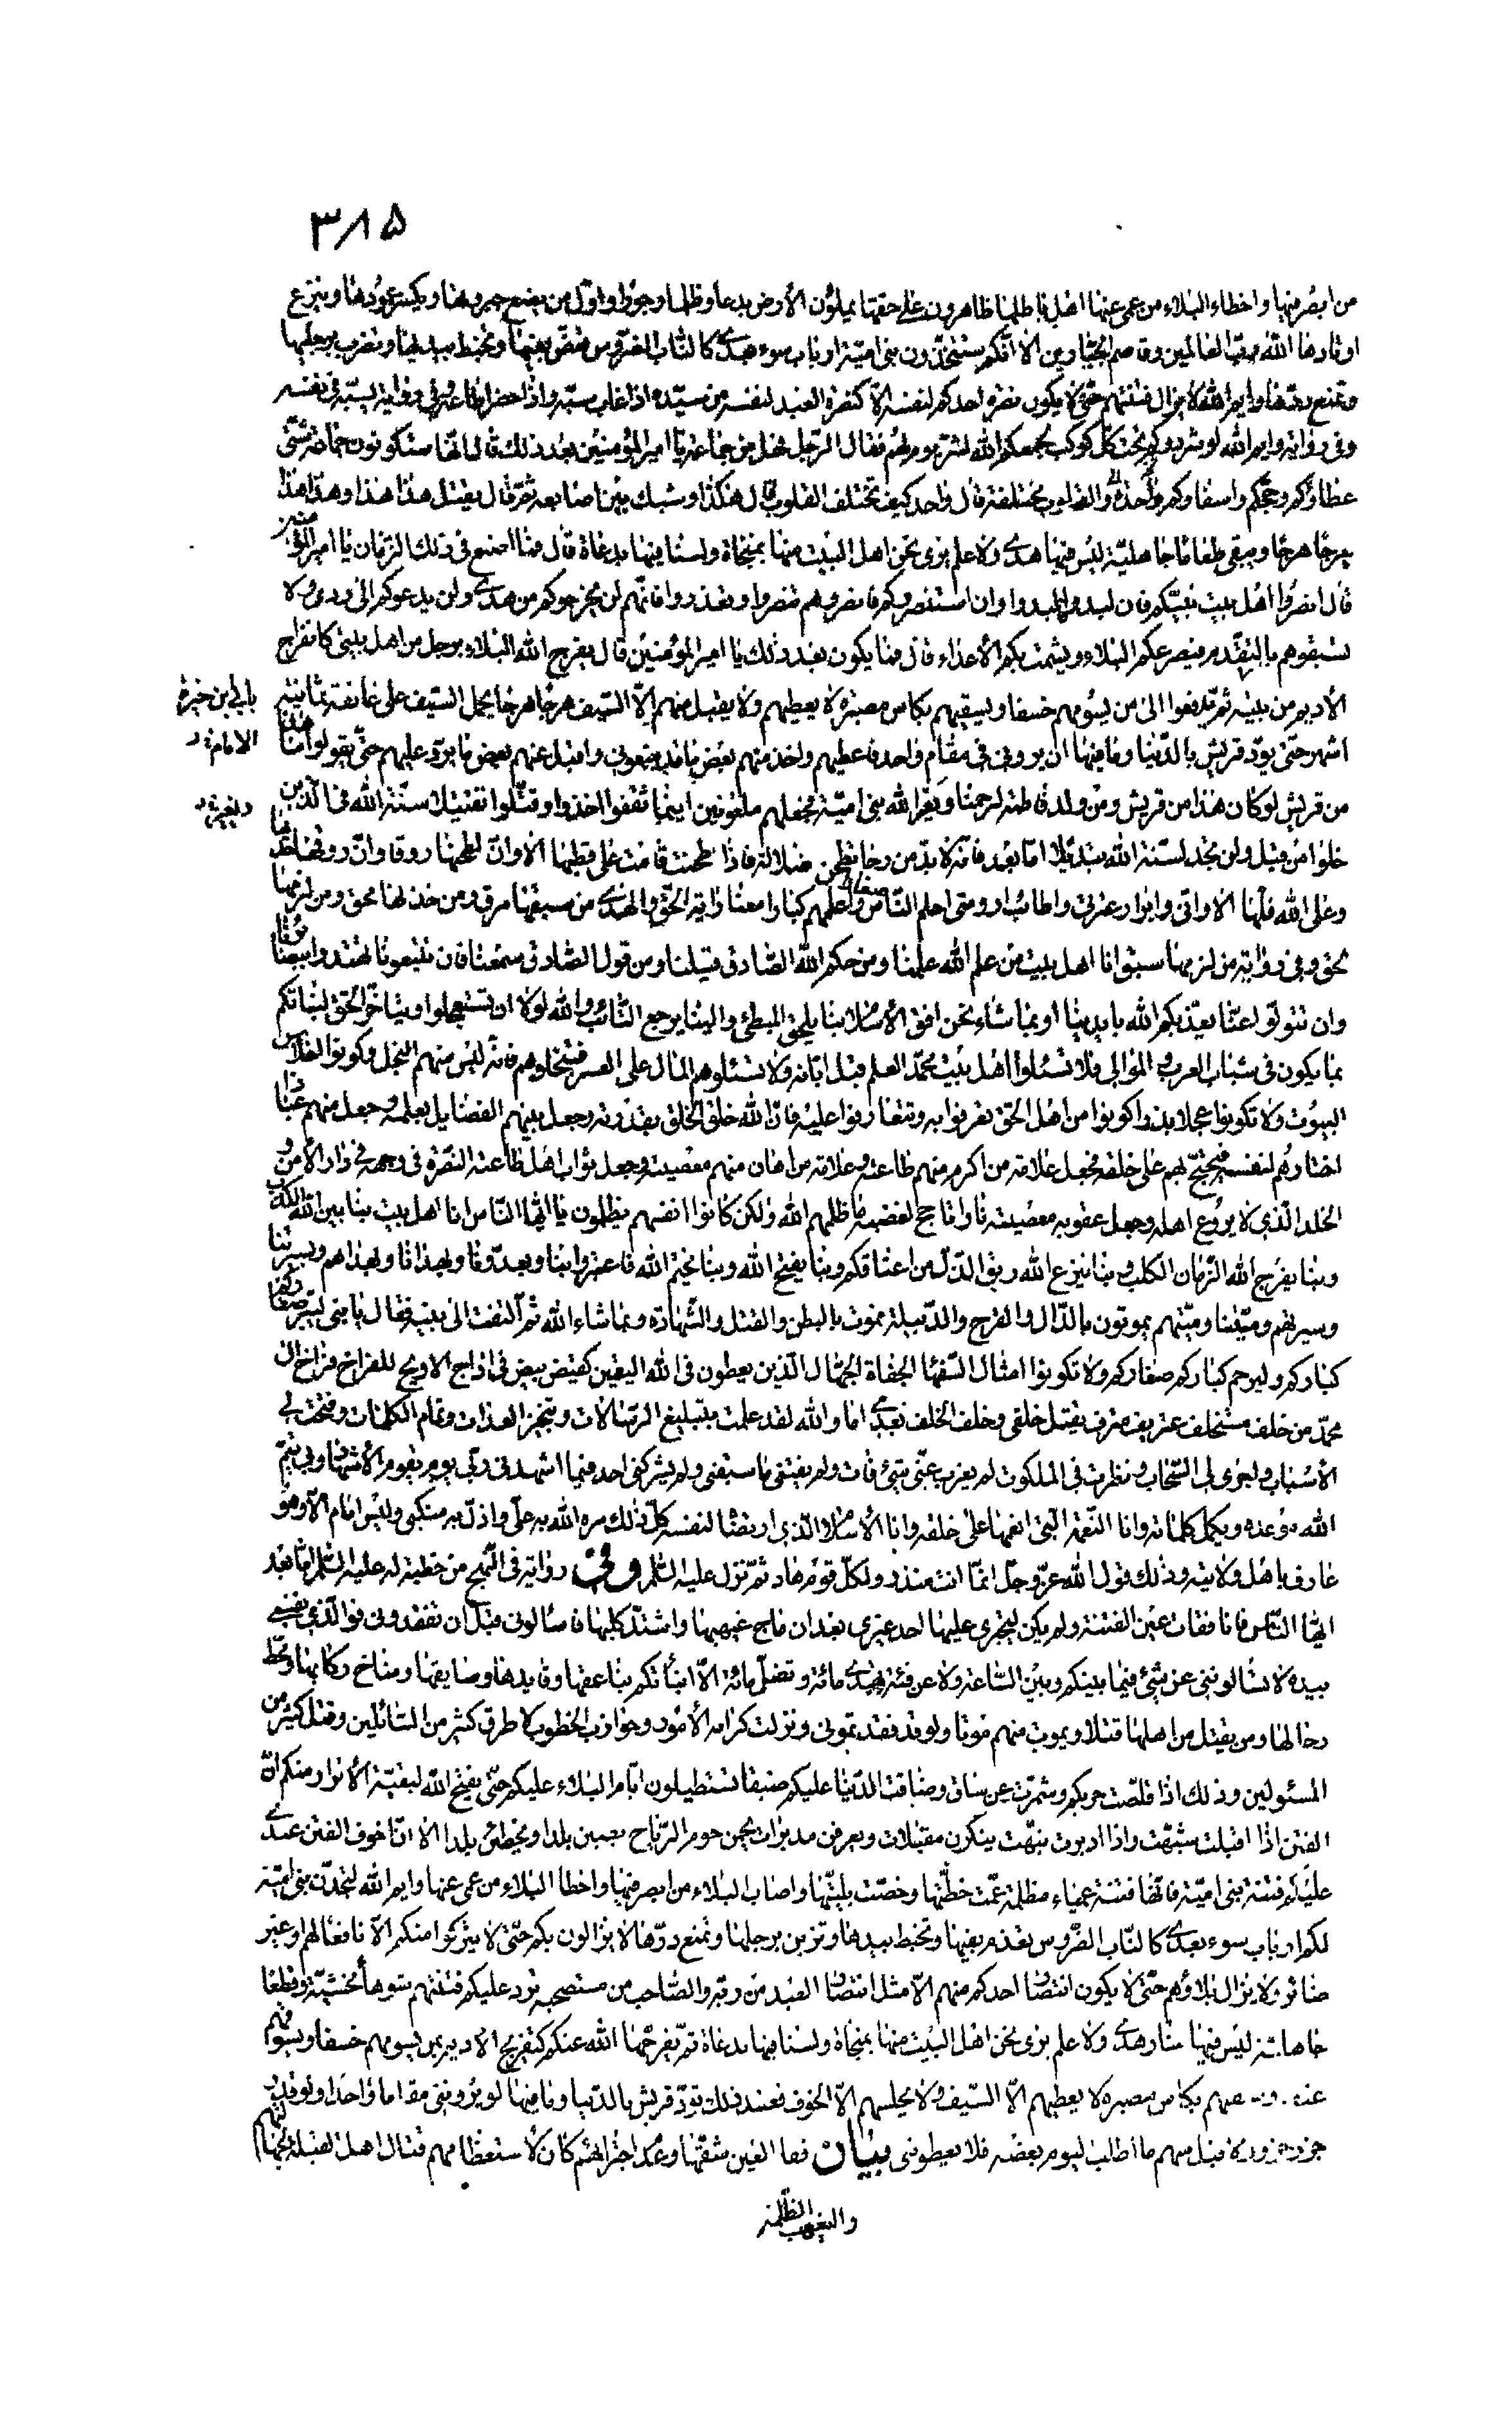 ٣٨٥
من ابصر منها واخطاء البلاء من عمي عنها اهل باطلها ظاهرون على حقها يملؤن الأرض بدعا وظلما وجورا واول من يضع جبروها ويكسر عمودها وينزع
اوتادها الله رب العالمين وقاصم الجبارين الا انكم ستجدون بني امية ارباب سوء بعدي كالناب الضروس تعض بفيها وتخبط بيديها وتضرب برجليها
وتمنع درها وايم الله لا يزال فتنتهم حتى لا يكون نصرة احدكم لنفسه الا كنصرة العبد لنفسه من سيده اذا غاب سبه واذا حضر اطاعه وفي رواية يسبه في نفسه
وفي رواية وايم الله لو شردوكم تحت كل كوكب لجمعكم الله لشر يوم لهم فقال الرجل فهل من جماعة يا امير المؤمنين بعد ذلك قال انها ستكونون جماعة شتى
عطاؤكم وحجكم واسفاركم واحد والقلوب مختلفة قال واحد كيف تختلف القلوب قال هكذا وشبك بين اصابعه ثم قال يقتل هذا هذا وهذا هذا
هرجا هرجا ويبقى طغاما جاهلية ليس فيها هدى ولا علم يرى نحن اهل البيت منها بمنجاة ولسنا فيها بدعاة قال فما اصنع في ذلك الزمان يا امير المؤمنين
قال انصروا اهل بيت نبيكم فان لبدوا فالبدوا وان استنصروكم فانصروهم تنصروا وتعذروا فانهم لن يخرجوكم من هدى ولن يدعوكم الى ردى ولا
تسبقوهم بالتقدم فيصرعكم البلاء ويشمت بكم الأعداء قال فما يكون بعد ذلك يا امير المؤمنين قال يفرج الله البلاء برجل من اهل بيتي كانفراج
الأديم من بيته ثم يرفعوا الى من يسومهم خسفا ويسقيهم بكاس مصبرة لا يعطيهم ولا يقبل منهم الا السيف هرجا هرجا يحمل السيف على عاتقه ثمانية
بابي ابن خيرة
الاماء
اشهر حتى يود قريش بالدنيا وما فيها ان يروني في مقام واحد فاعطيهم واخذ منهم بعض ما قد منعوني واقبل عنهم بعض ما يرد عليهم حتى يقولوا ما هذا
من قريش لو كان هذا من قريش ومن ولد فاطمة لرحمنا ويغريه الله ببني امية فجعلهم ملعونين اينما ثقفوا اخذوا وقتلوا تقتيلا سنة الله في الذين
خلوا من قبل ولن تجد لسنة الله تبديلا اما بعد فانه لا بد من رحا تطحن ضلالة فاذا طحنت قامت على قطبها الا وان لطحنها روقا وان روقها حدها
وعلى الله فلها الا واني وابرار عترتي واطائب ارومتي احلم الناس صغارا واعلمهم كبارا معنا راية الحق والهدى من سبقها مرق ومن خذلها محق ومن لزمها
لحق وفي رواية من لزمها سبق انا اهل بيت من علم الله علمنا ومن حكم الله الصادق قيلنا ومن قول الصادق سمعنا فان تتبعونا تهتدوا ببصائرنا
وان تتولوا عنا يعذبكم الله بايدينا او بما شاء نحن افق الأسلام بنا يلحق المبطئ والينا يرجع التائب والله لولا ان تستعجلوا ويتاخر الحق لنباتكم
بما يكون في شباب العرب والموالي فلا تسئلوا اهل بيت محمد العلم قبل ابانه ولا تسئلوهم المال على العسر فتبخلوهم فانه ليس منهم البخل وكونوا احلاس
البيوت ولا تكونوا عجلا بذرا كونوا من اهل الحق تعرفوا به وتتعارفوا عليه فان الله خلق الخلق بقدرته وجعل بينهم الفضايل بعلمه وجعل منهم عبادا
اختارهم لنفسه ليحتج بهم على خلقه فجعل علامة من اكرم منهم طاعته وعلامة من اهان منهم معصيته وجعل ثواب اهل طاعته النضرة في وجهه في دار الأمن و
الخلد الذي لا يروع اهله وجعل عقوبة معصيته نارا تاجج لغضبه ما ظلمهم الله ولكن كانوا انفسهم يظلمون يا ايها الناس انا اهل بيت بنا بين الله الكذب
وبنا يفرج الله الزمان الكلب وبنا ينزع الله ربق الذل من اعناقكم وبنا يفتح الله وبنا يختم الله فاعتبروا بنا وبعدونا وبهدانا وبهداهم وبسيرتنا
وسيرتهم وميتنا وميتهم يموتون بالدال والقرح والدبيلة ونموت بالبطن والقتل والشهادة وبما شاء الله ثم التفت الى بنيه فقال يا بني ليبر صغاركم
كباركم وليرحم كباركم صغاركم ولا تكونوا امثال السفها الجفاة الجهال الذين يعطون في الله اليقين كقيض بيض في اداح الا ويح للفراخ فراخ ال
محمد من خلف مستخلف عتريف مترف يقتل خلفي وخلف الخلف بعدي اما والله لقد علمت بتبليغ الرسالات وتنجيز العدات وتمام الكلمات وفتحت لي
الأسباب واجرى لي السحاب ونظرت في الملكوت لم يعزب عني شيء فات ولم يفتني ما سبقني ولم يشركني احد فيما اشهدني ربي يوم يقوم الأشهاد وبي يتم
الله موعده ويكمل كلماته وانا النعمة التي انعمها على خلقه وانا الأسلام الذي ارتضاه لنفسه كل ذلك من الله به علي واذل به منكبي وليس امام الا وهو
عارف باهل ولايته وذلك قول الله عز وجل انما انت منذر ولكل قوم هاد ثم نزل عليه السلم وفي رواية في النهج من خطبة له عليه السلم اما بعد
ايها الناس فانا فقات عين الفتنة ولم يكن ليجتري عليها احد غيري بعد ان ماج غيهبها واشتد كلبها فاسألوني قبل ان تفقدوني فوالذي نفسي
بيده لا تسألونني عن شيء فيما بينكم وبين الساعة ولا عن فئة تهدي مائة وتضل مائة الا انبأتكم بناعقها وقايدها وسايقها ومناخ ركابها ومحط
رحالها ومن يقتل من اهلها قتلا ويموت منهم موتا ولو قد فقدتموني ونزلت كرائه الأمور وحوازب الخطوب لاطرق كثير من السائلين وفشل كثير من
المسئولين وذلك اذا قلصت حربكم وشمرت عن ساق وضاقت الدنيا عليكم ضيقا تستطيلون ايام البلاء عليكم حتى يفتح الله لبقية الأبرار منكم ان
الفتن اذا اقبلت شبهت واذا ادبرت نبهت ينكرن مقبلات ويعرفن مدبرات يحمن حوم الرياح يصبن بلدا ويخطئن بلدا الا ان اخوف الفتن عندي
عليكم فتنة بني امية فانها فتنة عمياء مظلمة عمت خطتها وخصت بليتها واصاب البلاء من ابصر فيها واخطا البلاء من عمي عنها وايم الله لتجدن بني امية
لكم ارباب سوء بعدي كالناب الضروس تعذم بفيها وتخبط بيدها وتزبن برجلها وتمنع درها لا يزالون بكم حتى لا يتركوا منكم الا نافعا لهم او غير
ضائر ولا يزال بلاؤهم حتى لا يكون انتصار احدكم منهم الا مثل انتصار العبد من ربه والصاحب من مستصحبه ترد عليكم فتنتهم شوهاء مخشية وقطعا
جاهلية ليس فيها منار هدى ولا علم يرى نحن اهل البيت منها بمنجاة ولسنا فيها بدعاة ثم يفرجها الله عنكم كتفريج الاديم بمن يسومهم خسفا ويسوقهم
عنفا ويسقيهم بكاس مصبرة لا يعطيهم الا السيف ولا يحلسهم الا الخوف فعند ذلك تود قريش بالدنيا وما فيها لو يرونني مقاما واحدا ولو قدر
جزر جزور لاقبل منهم ما اطلب اليوم بعضه فلا يعطونني بيان فقا العين شقها وعدم اجترائهم كان لاستعظامهم قتال اهل القبلة لجهلهم
والغيهب الظلمة